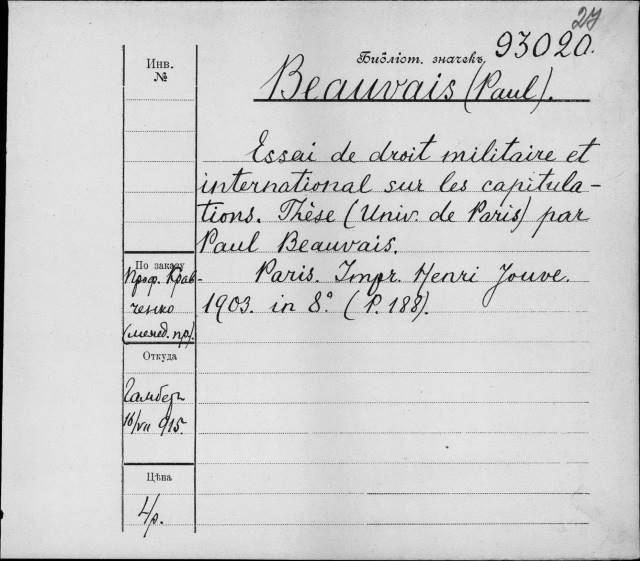 27
Инв.
№
Библіот. значекъ 93020.
Beauvais (Paul).
Essai de droit militaire et
international sur les capitula-
tions. Thèse (Univ. de Paris) par
Paul Beauvais.
Paris. Impr. Henri Jouve.
1903. in 8º. (P. 188).
По заказу
Проф. Крав-
ченко
(межд. пр).
Откуда
Гамбер
16/VII 915.
Цѣна
4/р.